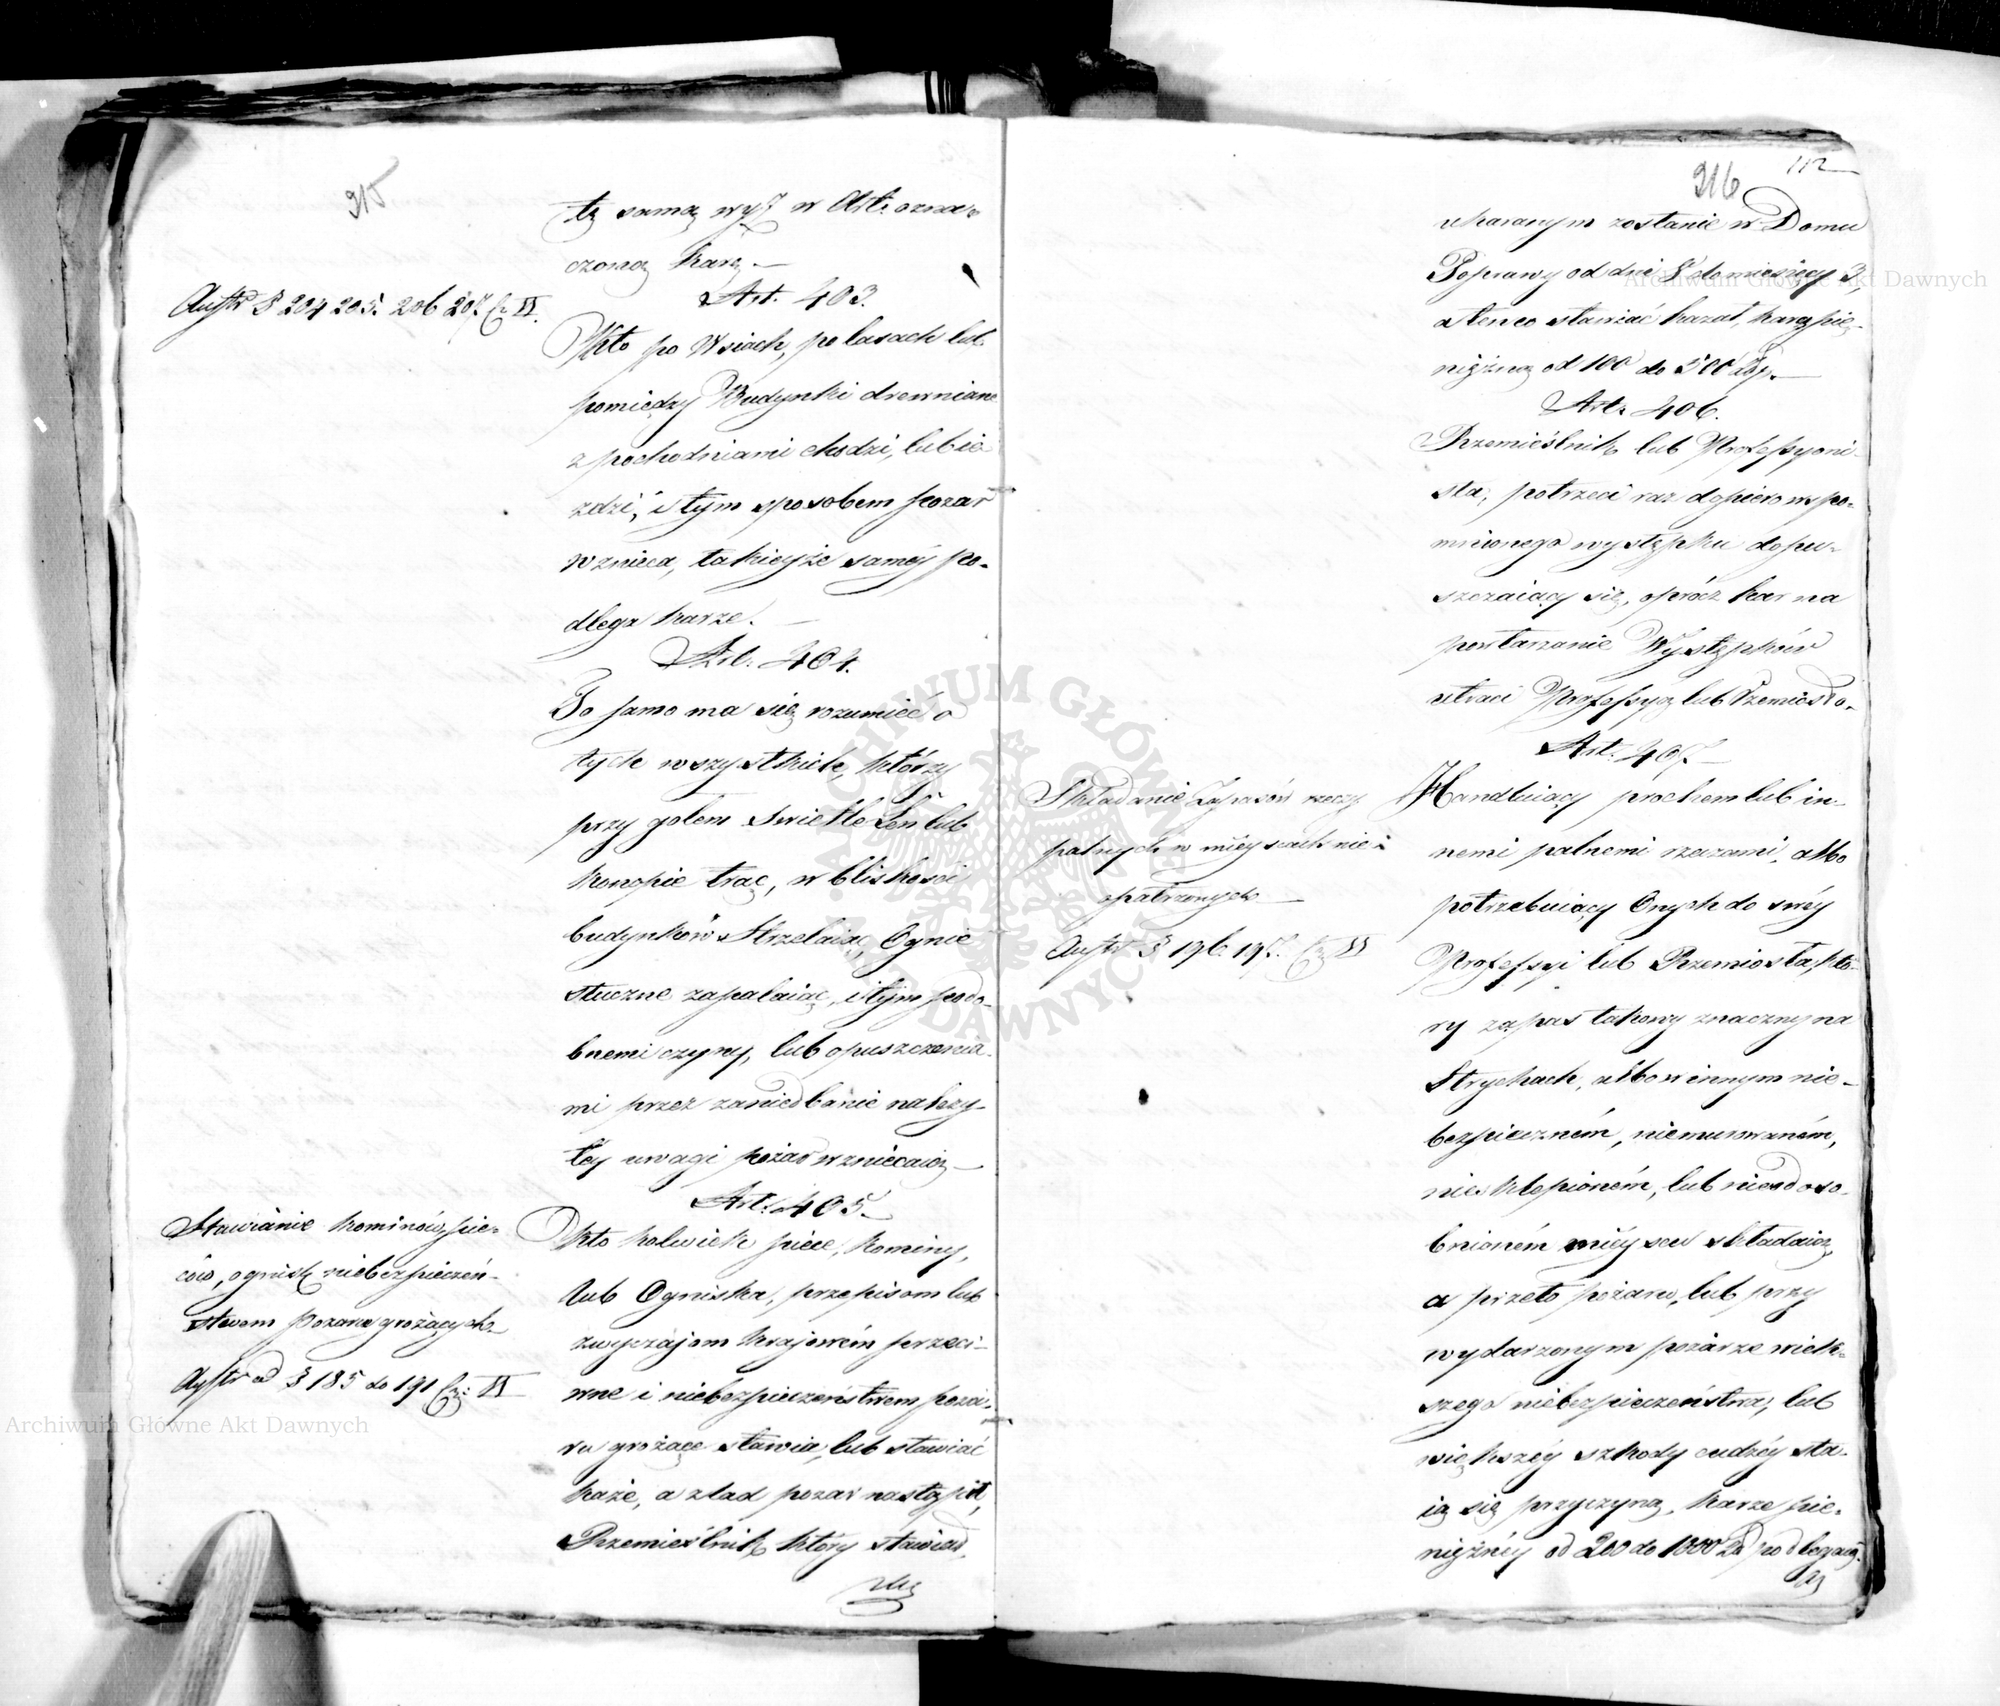 215
tę samą wyż w Art. ozna-
czoną karę. —
Austr § 204 205. 206 207. Cz. II.
Art. 403.
Kto po Wsiach, po lasach lub
pomiędzy Budynki drewniane
z pochodniami chodzi, lub ie-
zdzi, i tym sposobem pożar
wznieca, takieyże saméy po-
dlega karze. —
Art. 404.
To samo ma się rozumieć o
tych wszystkich, którzy
przy gołem świetle Len lub
konopie trąc, w bliskości
budynków strzelaiąc, Ognie
sztuczne zapalaiąc, i tym podo-
bnemi czyny, lub opuszczenia-
mi przez zaniedbanie należy-
tey uwagi pożar wzniecaią —
Art. 405.
Stawianie kominów, pie-
ców, ognisk niebezpieczeń-
stwem Pożaru grożących —
Austr od § 185 do 191 Cz: II
Kto kolwiek piece, kominy,
lub Ogniska, przepisom lub
zwyczajom krajowém przeci-
wne i niebezpieczeństwem poża-
ru grożące stawia, lub stawiać
każe, a ztąd pożar nastąpił,
Przemieślnik który stawiał,
216
112
ukaranym zostanie w Domu
Poprawy od dni 8 do miesięcy 3,
a ten co stawiać kazał, karą pie-
niężną od 100 do 500 Złp. —
Art. 406.
Przemieślnik lub Professyoni-
sta, potrzeci raz dopiero wspo-
mnionego występku dopu-
szczaiący się, oprócz kar na
powtarzanie Występków
utraci Professyą lub Rzemiosło.
Art. 407. —
Składanie Zapasów rzeczy
palnych w mieyscach nie
opatrzonych —
Austr § 196. 197. Cz. II
Handluiący prochem lub in-
nemi palnemi rzeczami, albo
potrzebuiący Onych do swéy
Professyi lub Rzemiosła, któ-
ry zapas takowy znaczny na
Strychach, albo w innym nie-
bezpieczném, niemurowaném,
niesklepioném, lub nieodoso-
bnioném mieyscu składaią,
a przeto pożaru, lub przy
wydarzonym pożarze więk-
szego niebezpieczeństwa, lub
większéy szkody cudzéy sta-
ią się przyczyną, karze pie-
niężnéy od 200 do 1000 Zł podlegaią.
Archiwum Główne Akt Dawnych
Archiwum Główne Akt Dawnych
ARCHIWUM GŁÓWNE AKT DAWNYCH